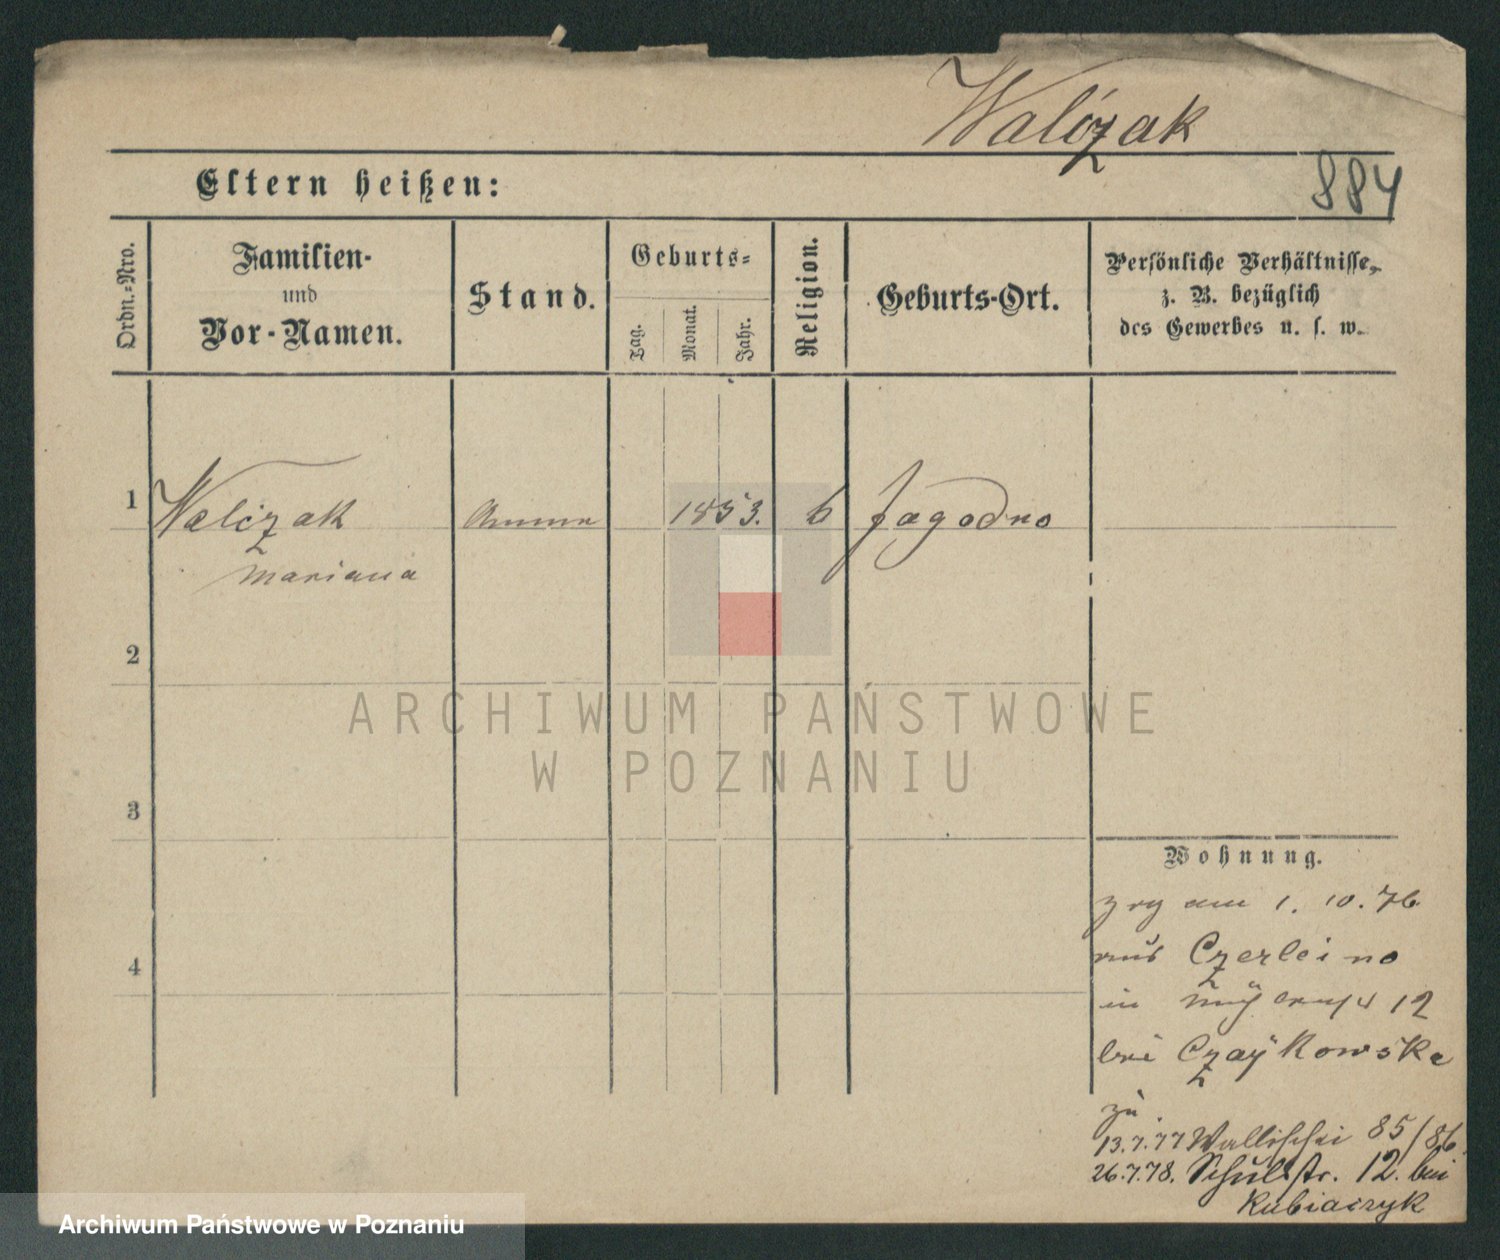 Walczak
884
Eltern heißen:
Ordn.-Nro.
Familien-
und
Vor-Namen.
Stand.
Geburts-
Tag.
Monat.
Jahr.
Religion.
Geburts-Ort.
Persönliche Verhältnisse,
z. B. bezüglich
des Gewerbes u. s. w.
1
Walczak
Mariana
Amme
1853.
Jagodno
2
3
4
Wohnung.
zog am 1. 10. 76
aus Czerleino
in 12
bei Czaÿkowska
zu
13.7.77 Wallischei 85/86
26.7.78. Schulstr. 12. bei
Kubiaczyk
ARCHIWUM PAŃSTWOWE
W POZNANIU
Archiwum Państwowe w Poznaniu